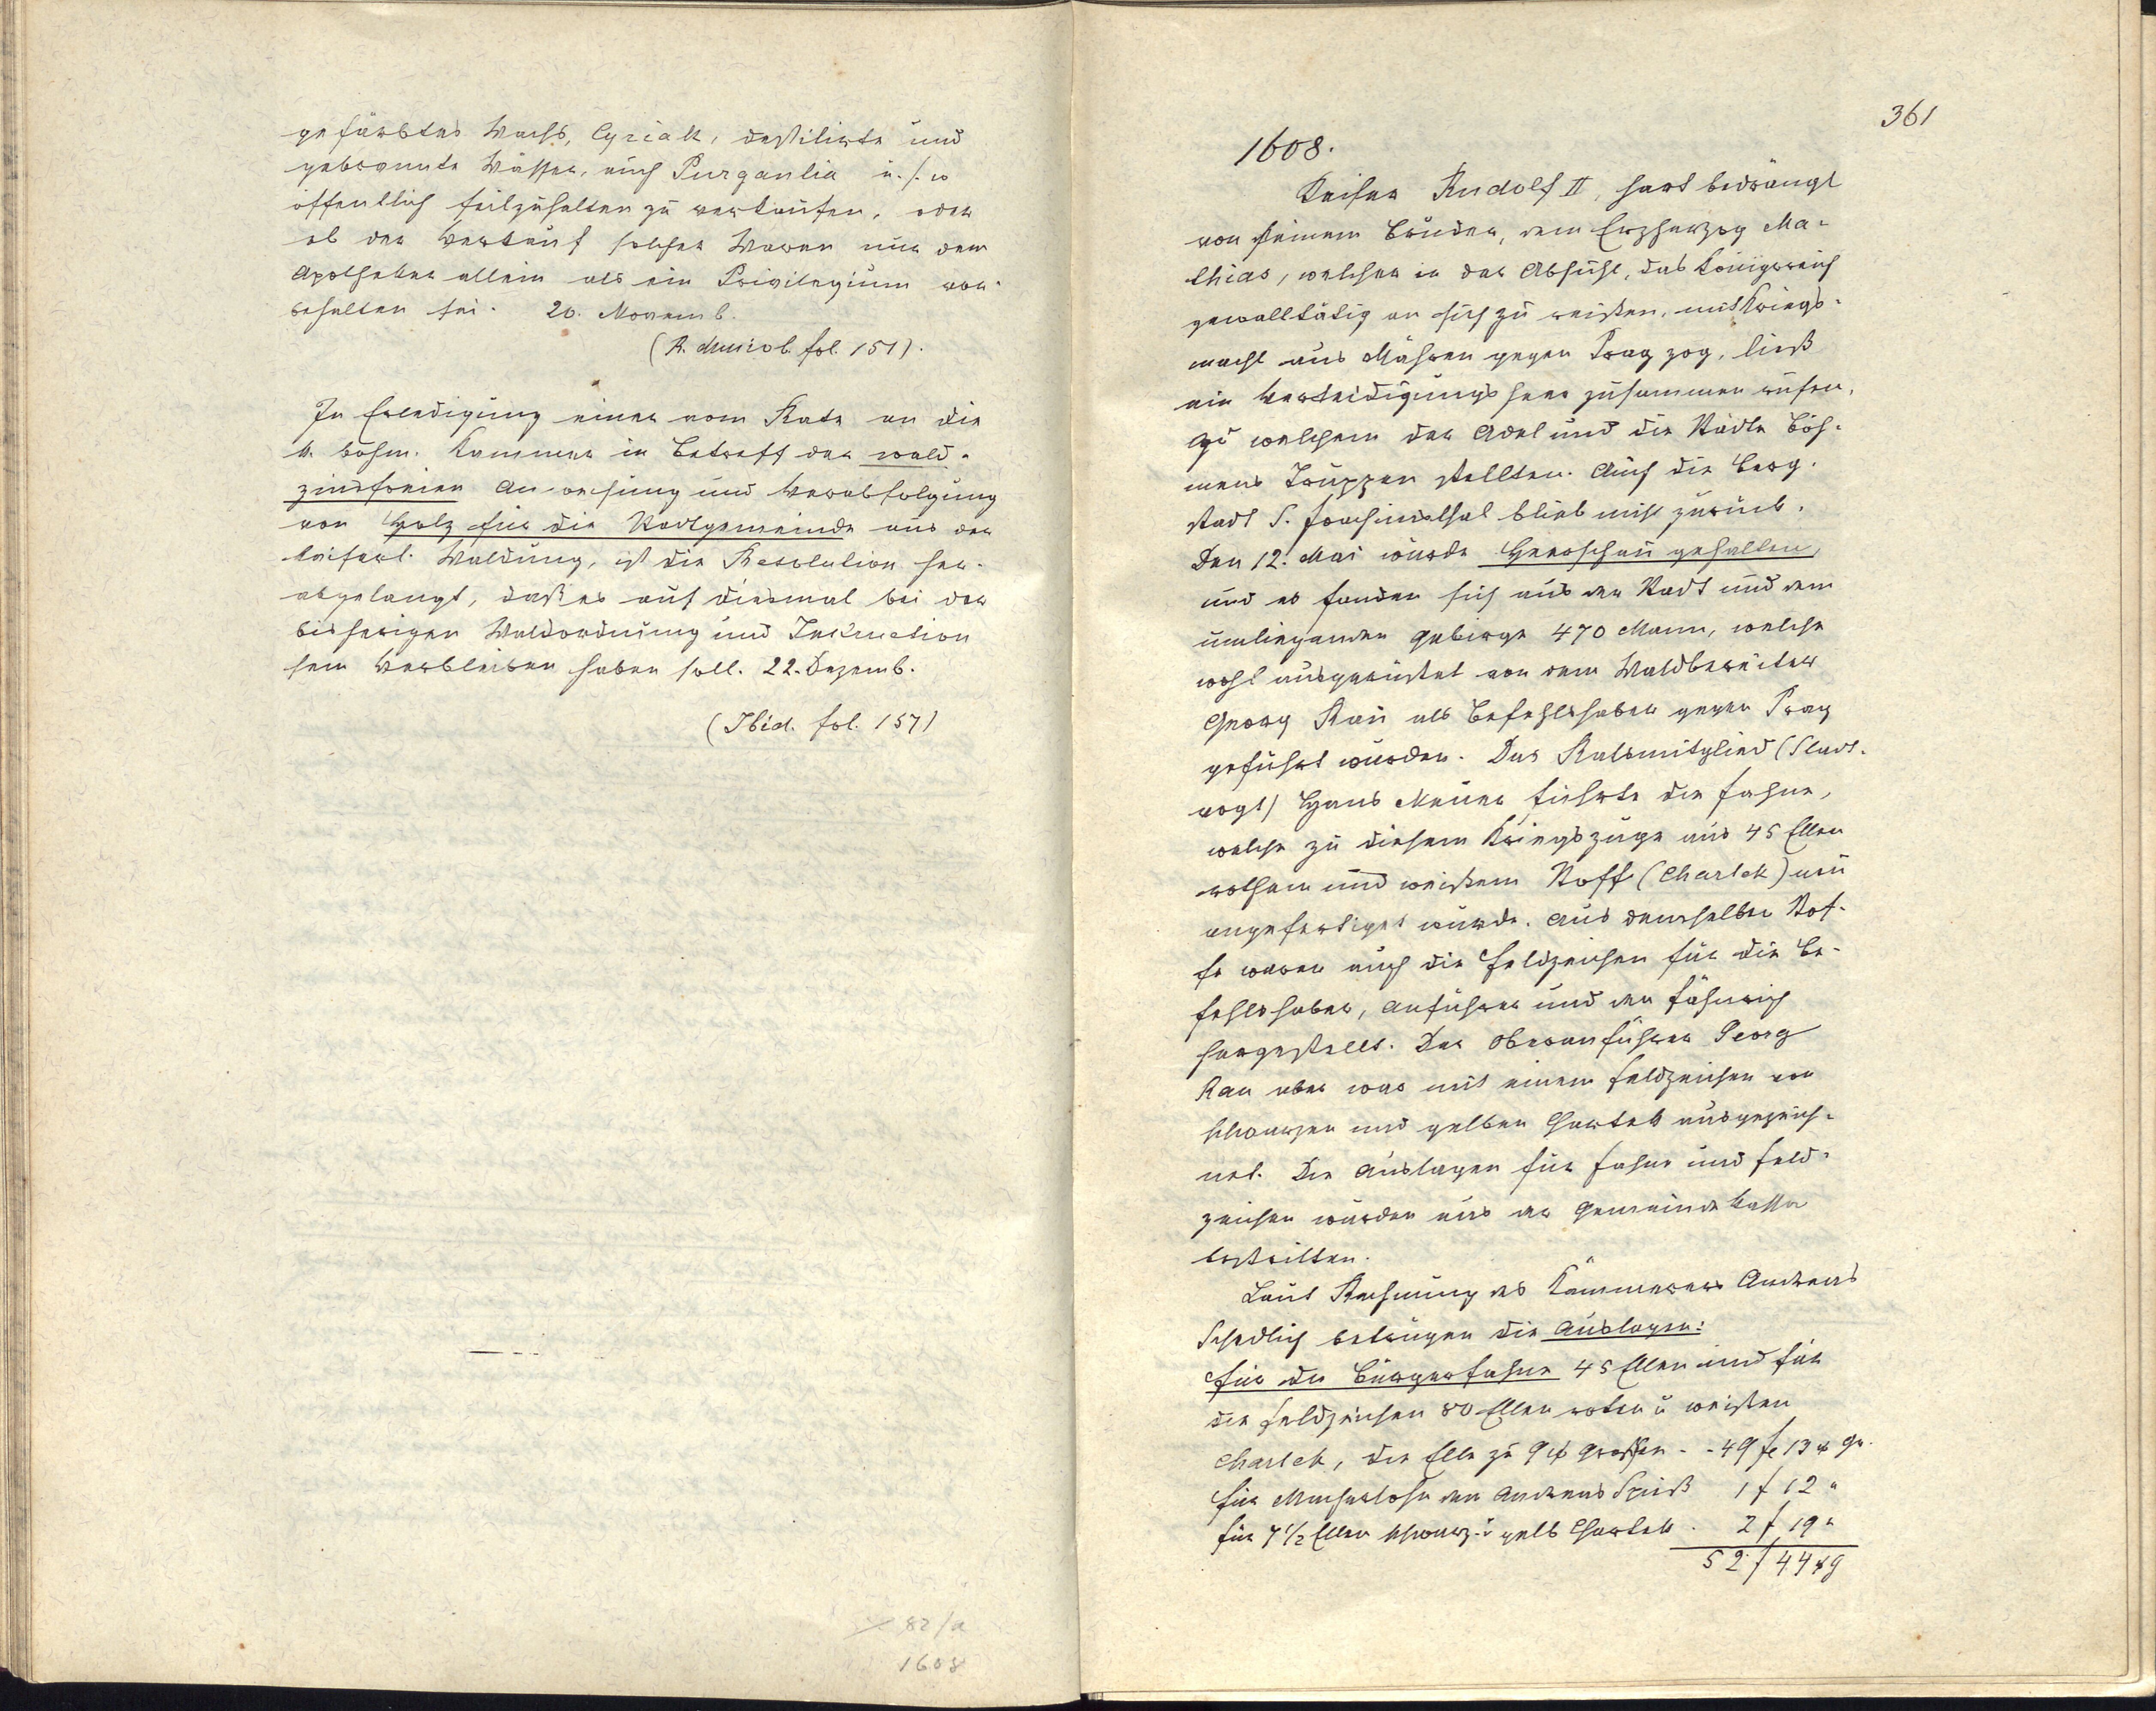 gefärbtes Wachs, Cyriak, destilirte und
gebrannte Wässer, auch Purgantia u. s. w
öffentlich feilzuhalten zu verkaufen, oder
ob der Verkauf solcher Waren nur dem
Apotheker allein als ein Privilegium vor-
behalten sei. 20. Novemb.
(R. fol. 151).
In Erledigung einer vom Rate an die
k. böhm. Kammer in Betreff der wald-
zinsfreien Anweisung und Verabfolgung
von Holz für die Stadtgemeinde aus der
kaiserl. Waldung, ist die Resolution her-
abgelangt, daß es auf diesmal bei der
bisherigen Waldordnung und Instruction
sein Verbleiben haben soll. 22. Dezemb.
(Ibid. fol. 157)
82/a
1608
361
1608.
Kaiser Rudolf II, hart bedrängt
von seinem Bruder, dem Erzherzog Ma-
thias, welcher in der Absicht, das Königreich
gewalttätig an sich zu reißen, mit Kriegs-
macht aus Mähren gegen Prag zog, ließ
ein Verteidigungsheer zusammen rufen,
zu welchem der Adel und die Städte Böh-
mens Truppen stellten. Auch die Berg-
stadt S. Joachimsthal blieb nicht zurück.
Den 12. Mai wurde Heerschau gehalten,
und es fanden sich aus der Stadt und dem
umliegenden Gebirge 470 Mann, welche
wohl ausgerüstet von dem Waldbereiter
Georg Rau als Befehlshaber gegen Prag
geführt wurden. Das Ratsmitglied (Stadt-
vogt) Hans Meiner führte die Fahne,
welche zu diesem Kriegszuge aus 45 Ellen
rothem und weißem Stoff (Charlek) neu
angefertiget wurde. Aus demselben Stof-
fe waren auch die Feldzeichen für die Be-
fehlshaber, Anführer und den Fähnrich
hergestellt. Der Oberanführer Georg
Rau aber war mit einem Feldzeichen von
schwarzen und gelben Chartek ausgezeich-
net. Die Auslagen für Fahne und Feld-
zeichen wurden aus der Gemeindekassa
bestritten.
Laut Rechnung des Kämmerers Andreas
Schedlich betrugen die Auslagen:
für die Bürgerfahne 45 Ellen und für
die Feldzeichen 80 Ellen roten u weißen
Charlek, die Elle zu 9 Groschen - - 49 f 13 gr.
für Macherlohn dem Andreas Spieß 1 f 12 "
für 7 1/2 Ellen schwarz u gelb Chartek . 2 f 19 "
52 f 44 g